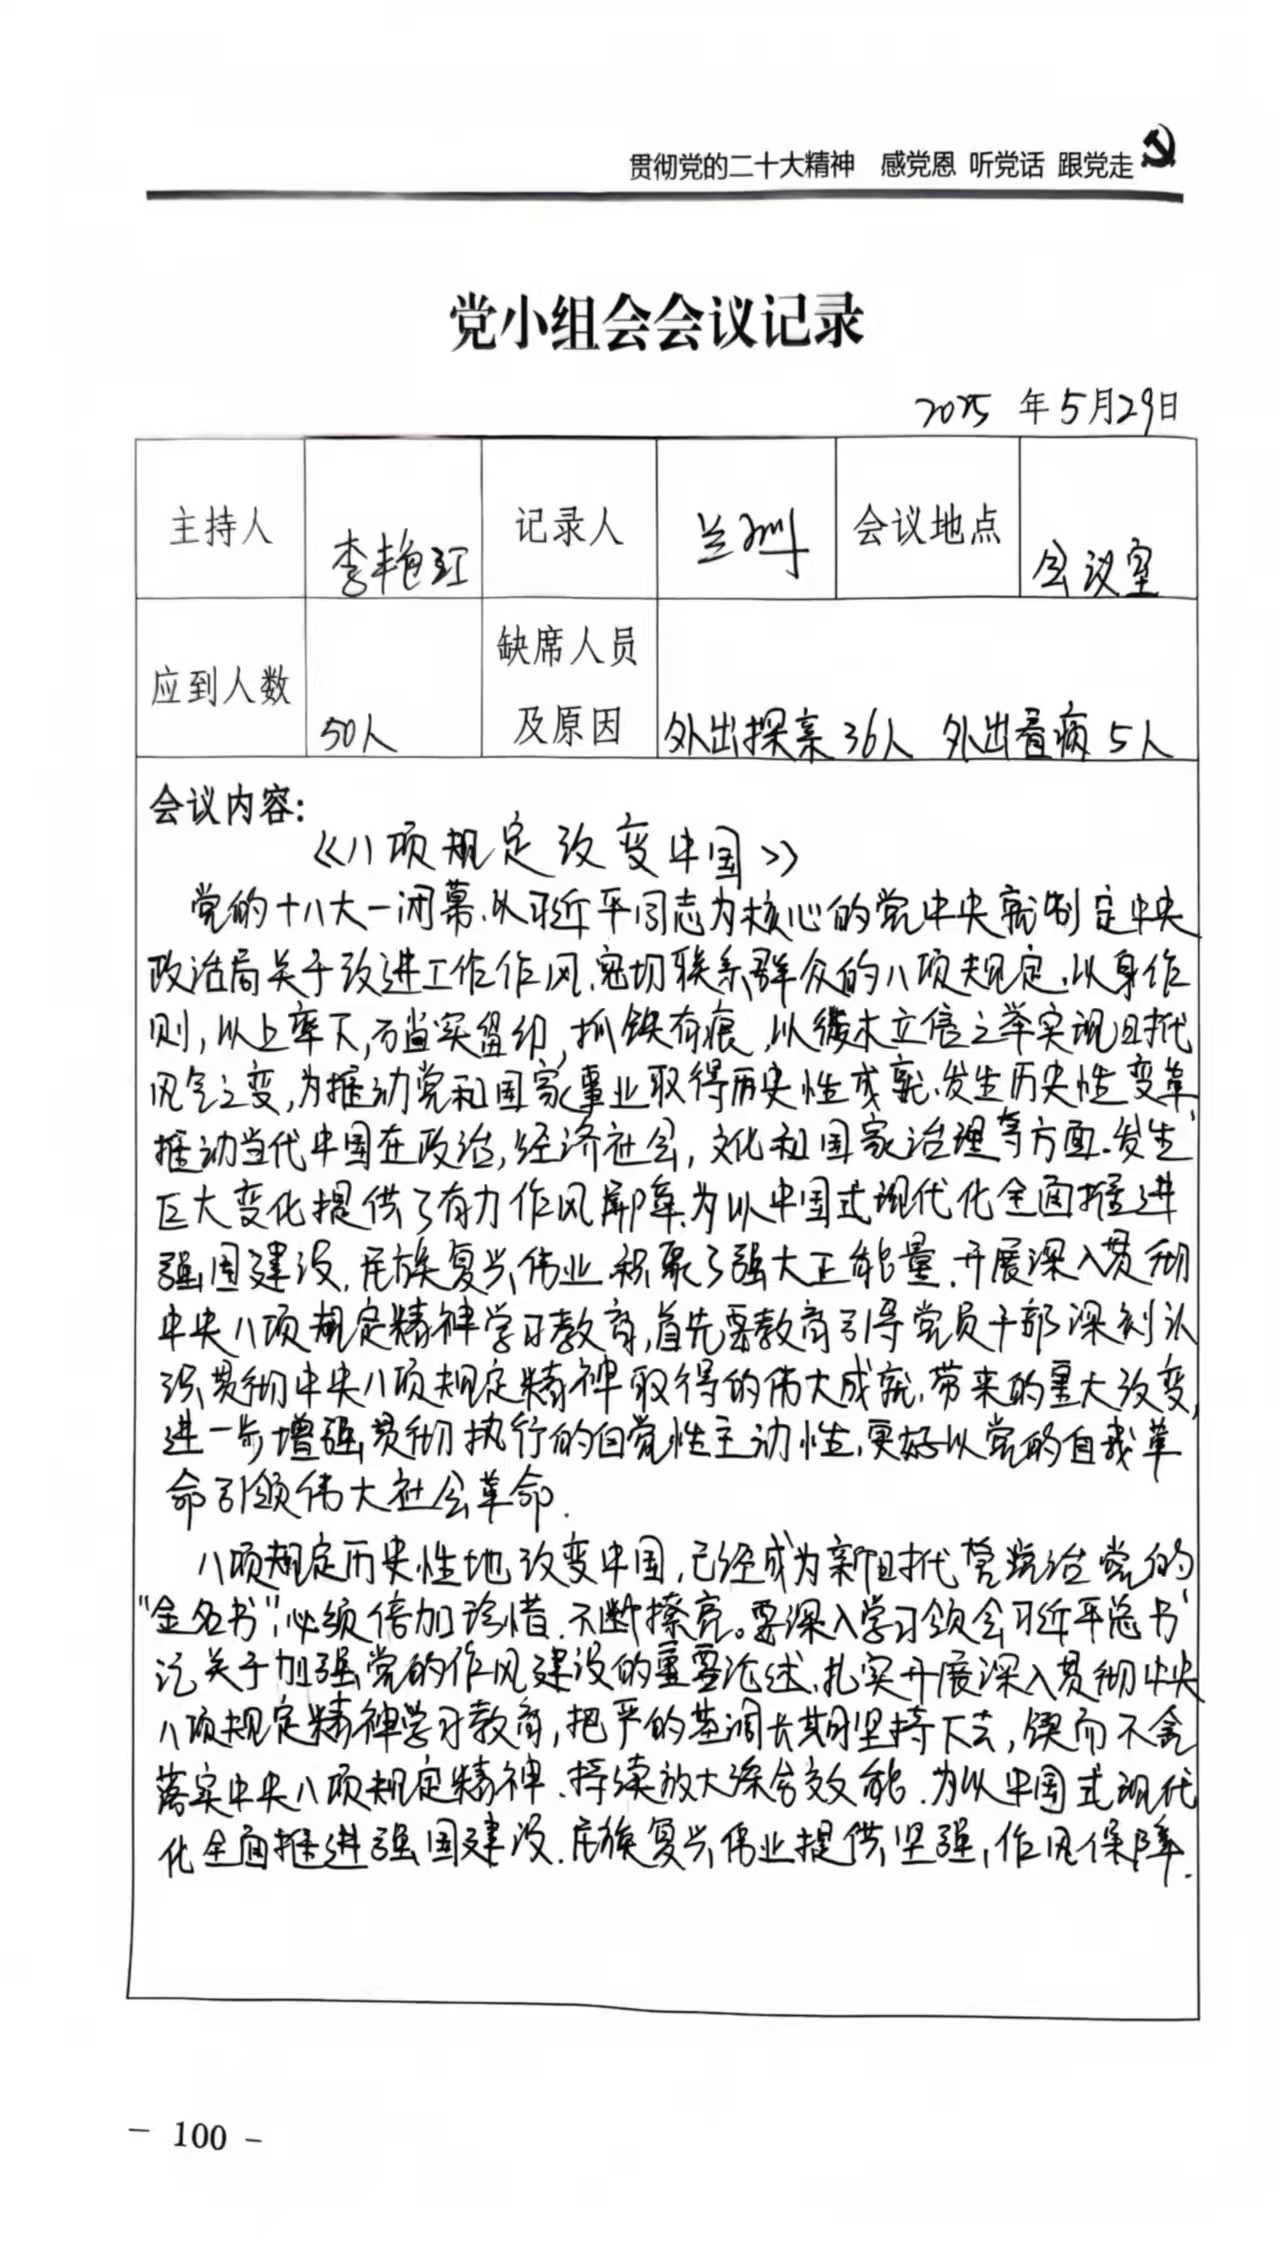 贯彻党的二十大精神 感党恩 听党话 跟党走
党小组会会议记录
2025 年5月29日
主持人 李艳红 记录人 会议地点 会议室
应到人数 50人 缺席人员及原因 外出探亲36人 外出看病5人
会议内容:
《八项规定改变中国》
党的十八大一闭幕、以习近平同志为核心的党中央就制定中央
政治局关于改进工作作风、密切联系群众的八项规定、以身作
则,以上率下,踏实留印,抓铁有痕,以徙木立信之举实现时代
风气之变,为推动党和国家事业取得历史性成就、发生历史性变革,
推动当代中国在政治,经济社会,文化和国家治理等方面、发生
巨大变化提供了有力作风屏障、为以中国式现代化全面推进
强国建设、民族复兴伟业积聚了强大正能量.开展深入贯彻
中央八项规定精神学习教育,首先要教育引导党员干部深刻认
识贯彻中央八项规定精神取得的伟大成就、带来的重大改变,
进一步增强贯彻执行的自觉性主动性、更好以党的自我革
命引领伟大社会革命.
八项规定历史性地改变中国,已经成为新时代管党治党的
"金名书",必须倍加珍惜.不断擦亮。要深入学习领会习近平总书
记关于加强党的作风建设的重要论述、扎实开展深入贯彻中央
八项规定精神学习教育,把严的基调长期坚持下去,锲而不舍
落实中央八项规定精神.持续放大综合效能.为以中国式现代
化全面推进强国建设.民族复兴伟业提供坚强作风保障.
- 100 -